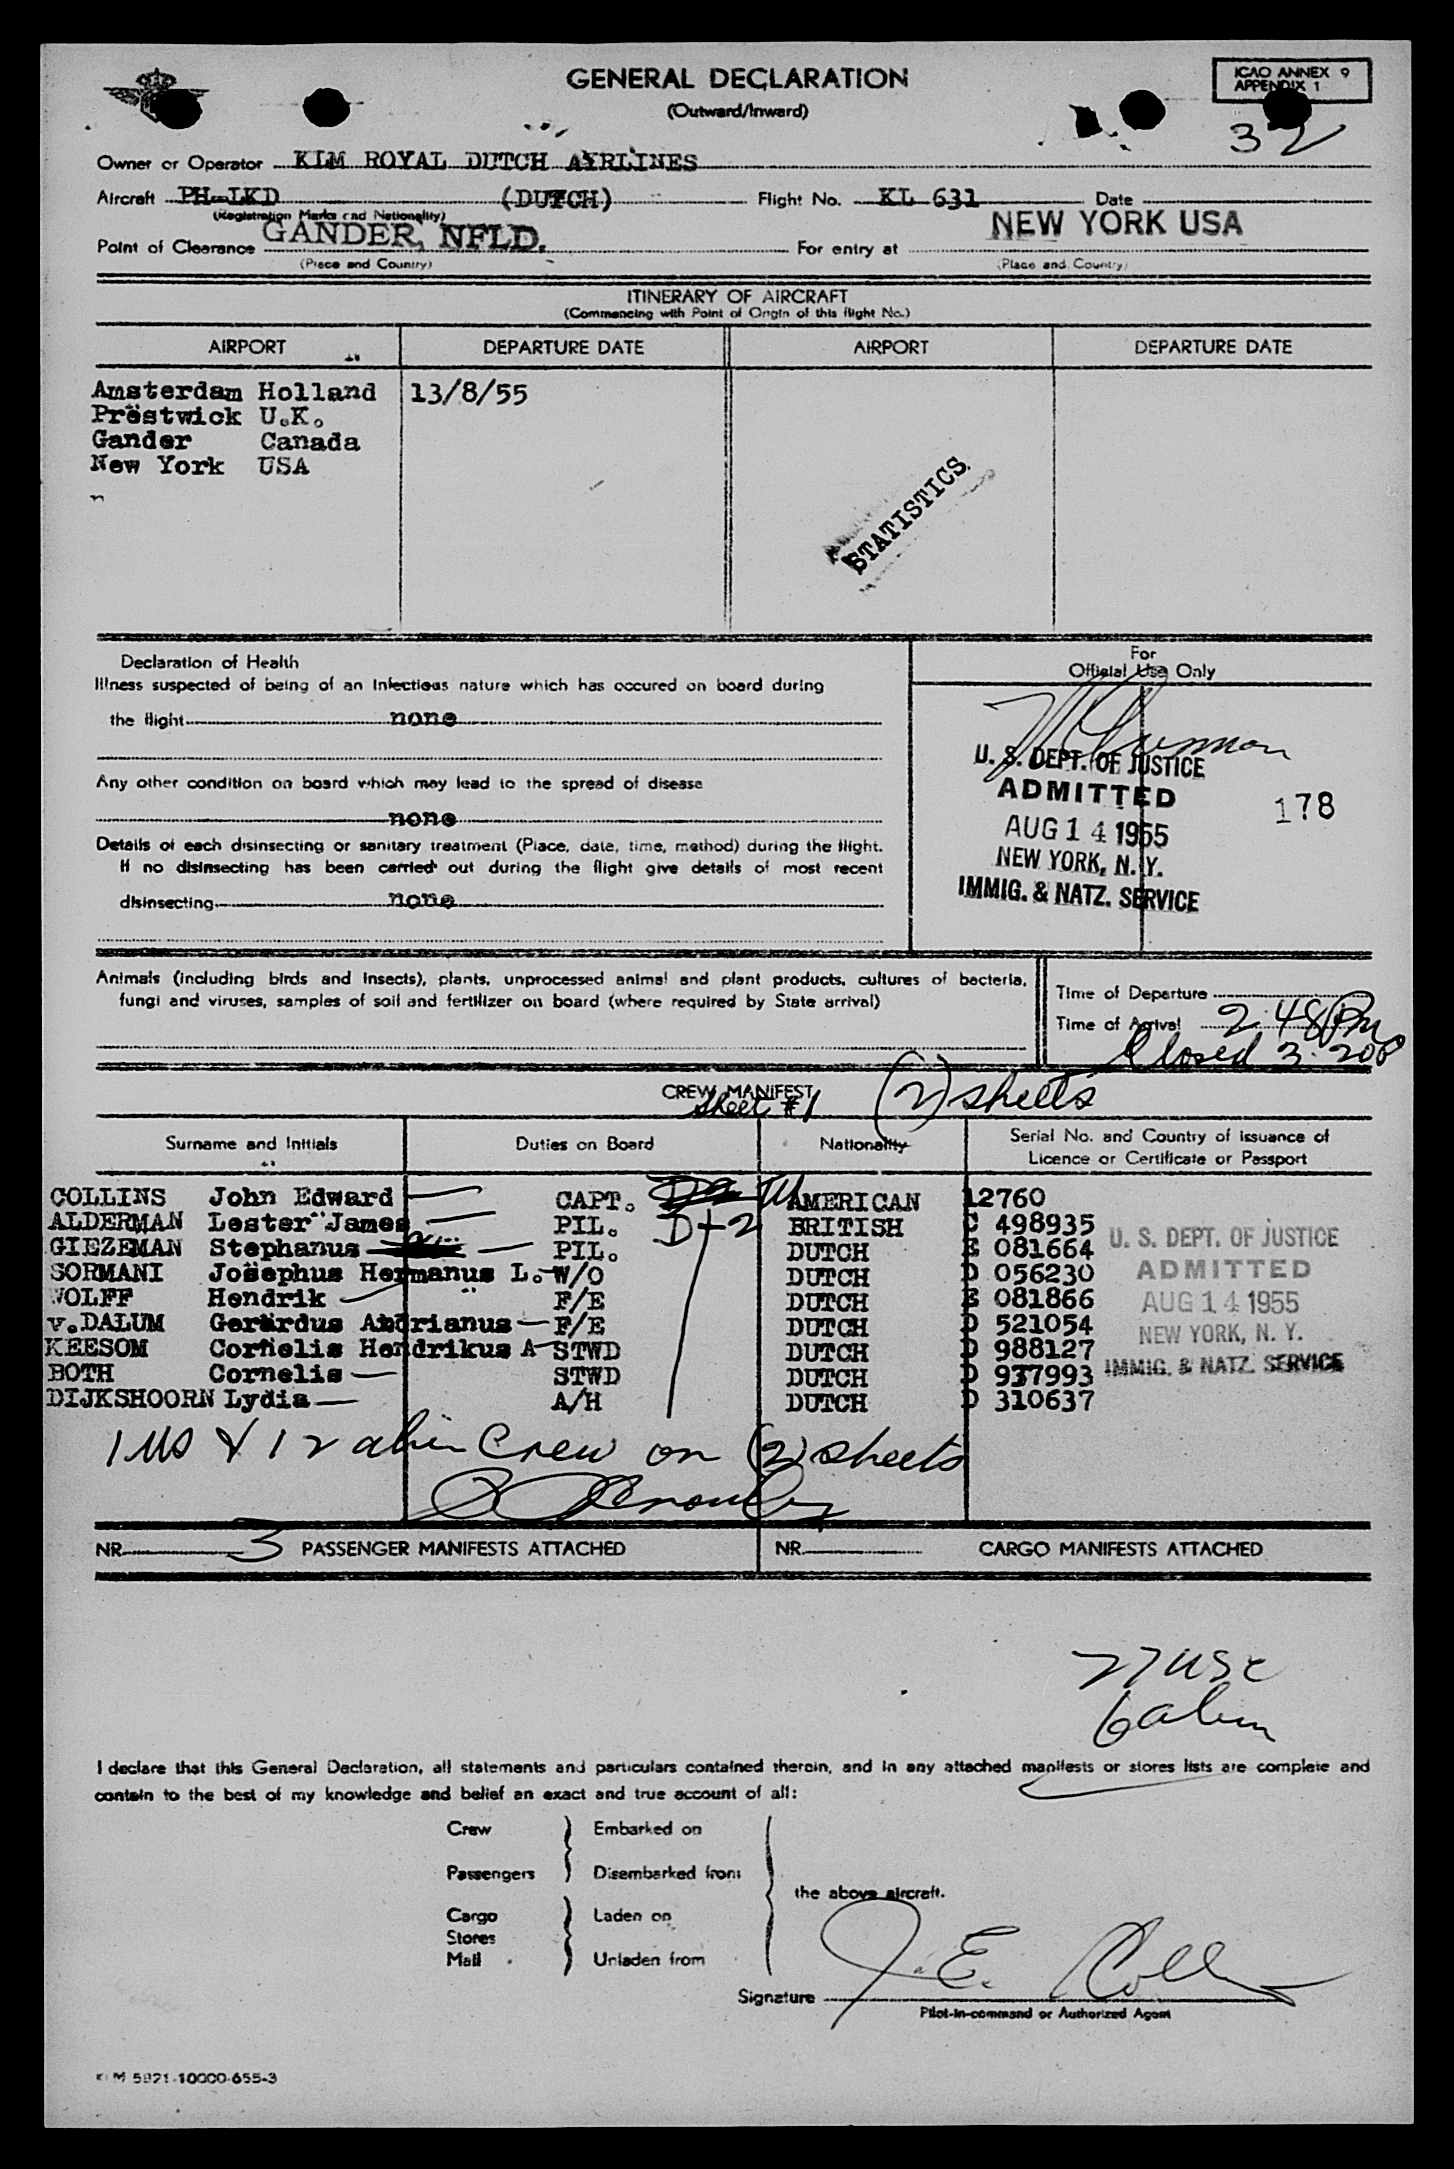 GENERAL DECLARATION
(Outward/Inward)
ICAO ANNEX 9
APPENDIX 1
32
Owner or Operator KLM ROYAL DUTCH AIRLINES
Aircraft PH-LKD (DUTCH) Flight No. KL 631 Date
(Registration Marks and Nationality)
Point of Clearance GANDER, NFLD. For entry at NEW YORK USA
(Place and Country) (Place and Country)
ITINERARY OF AIRCRAFT
(Commencing with Point of Origin of this flight No.)
AIRPORT DEPARTURE DATE AIRPORT DEPARTURE DATE
Amsterdam Holland 13/8/55
Prestwick U.K.
Gander Canada
New York USA
STATISTICS
Declaration of Health
Illness suspected of being of an Infectious nature which has occured on board during
the flight none
Any other condition on board which may lead to the spread of disease
none
Details of each disinsecting or sanitary treatment (Place, date, time, method) during the flight.
If no disinsecting has been carried out during the flight give details of most recent
disinsecting none
For
Official Use Only
U. S. DEPT. OF JUSTICE
ADMITTED
AUG 14 1955
NEW YORK, N. Y.
IMMIG. & NATZ. SERVICE
178
Animals (including birds and insects), plants, unprocessed animal and plant products, cultures of bacteria,
fungi and viruses, samples of soil and fertilizer on board (where required by State arrival)
Time of Departure
Time of Arrival 2:48 PM
Closed 3:20P
CREW MANIFEST (2) sheets
Sheet #1
Surname and Initials Duties on Board Nationality Serial No. and Country of issuance of
Licence or Certificate or Passport
COLLINS John Edward CAPT. AMERICAN 12760
ALDERMAN Lester James PIL. D+2 BRITISH C 498935
GIEZEMAN Stephanus PIL. DUTCH E 081664
SORMANI Josephus Hermanus L. W/O DUTCH D 056230
WOLFF Hendrik F/E DUTCH E 081866
v.DALUM Gerardus Adrianus F/E DUTCH D 521054
KEESOM Cornelis Hendrikus A STWD DUTCH D 988127
BOTH Cornelis STWD DUTCH D 937993
DIJKSHOORN Lydia A/H DUTCH D 310637
U. S. DEPT. OF JUSTICE
ADMITTED
AUG 14 1955
NEW YORK, N. Y.
IMMIG. & NATZ. SERVICE
1 US & 12 alien Crew on (2) sheets
NR. 3 PASSENGER MANIFESTS ATTACHED NR. CARGO MANIFESTS ATTACHED
27 USC
6 alien
I declare that this General Declaration, all statements and particulars contained therein, and in any attached manifests or stores lists are complete and
contain to the best of my knowledge and belief an exact and true account of all:
Crew Embarked on
Passengers Disembarked from
the above aircraft.
Cargo Laden on
Stores
Mail Unladen from
Signature J. E. Coll
Pilot-in-command or Authorized Agent
KLM 5921-10000-655-3